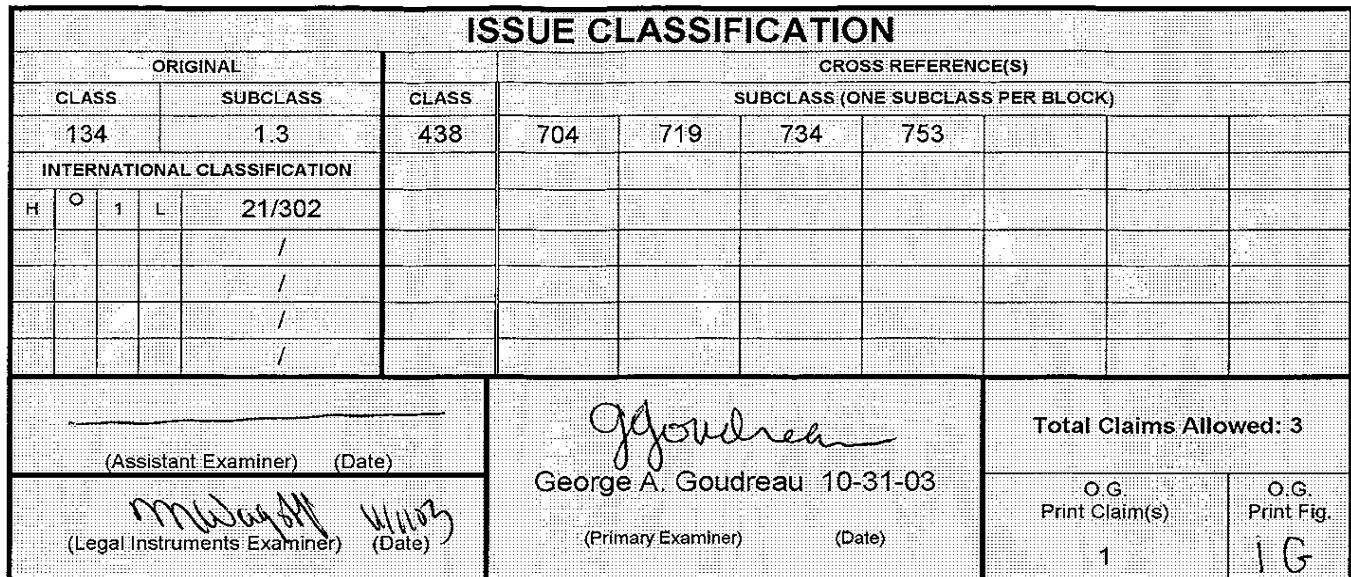 ISSUE CLASSIFICATION
ORIGINAL CROSS REFERENCE(S)
CLASS SUBCLASS CLASS SUBCLASS (ONE SUBCLASS PER BLOCK)
134 1.3 438 704 719 734 753
INTERNATIONAL CLASSIFICATION
H 0 1 L 21/302
/
/
/
/
(Assistant Examiner) (Date)
(Legal Instruments Examiner) (Date)
GGoudreau
George A. Goudreau 10-31-03
(Primary Examiner) (Date)
Total Claims Allowed: 3
O.G.
Print Claim(s)
1
O.G.
Print Fig.
1G